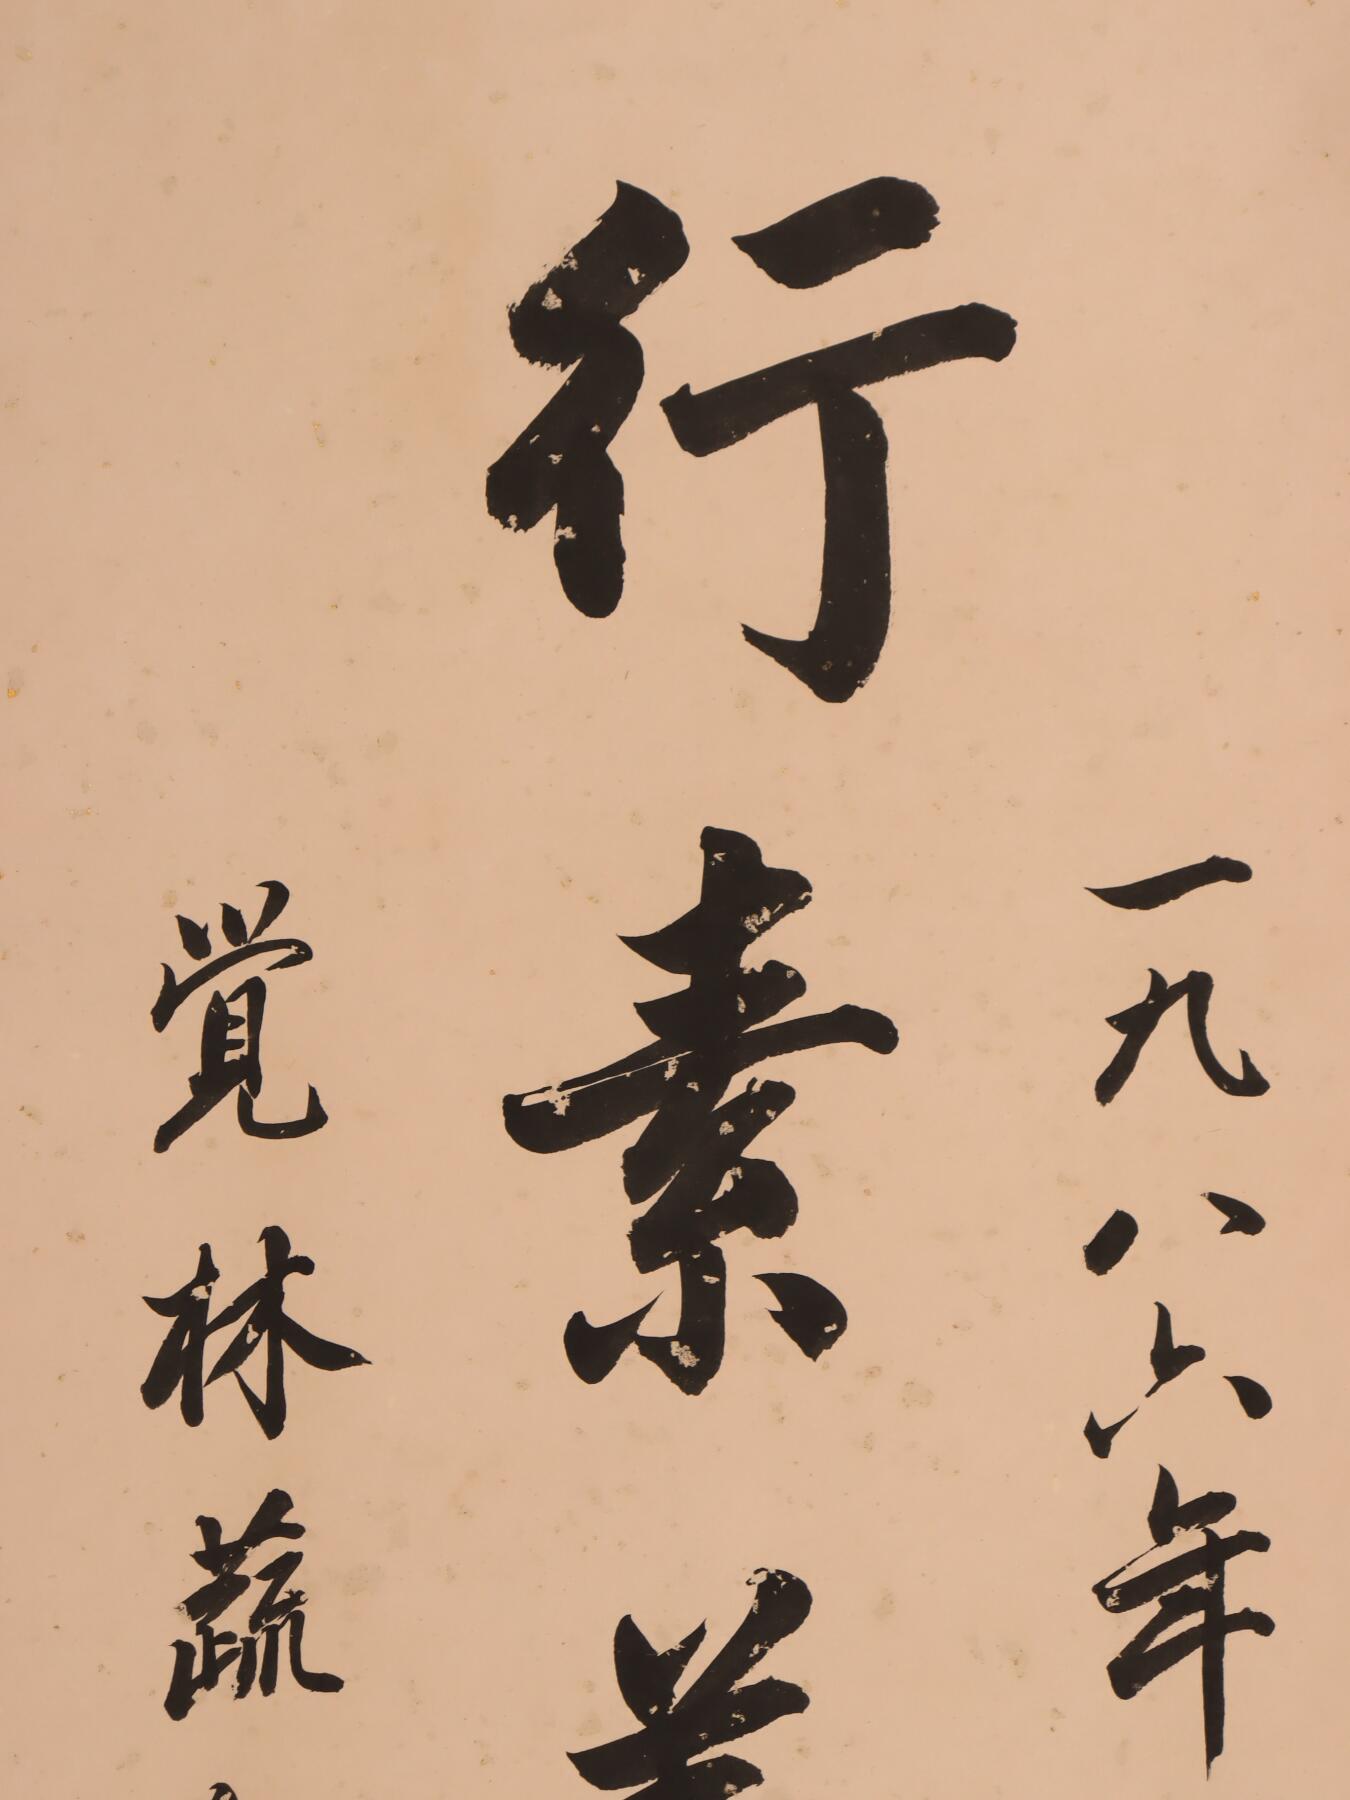 一九八六年
行素
覺林蔬